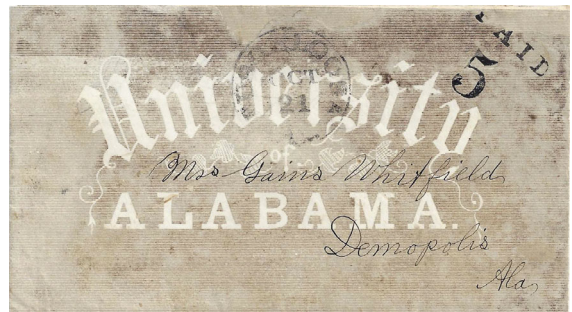 PAID
5
OCT
21
University
OF
ALABAMA.
Mrs Gains Whitfield
Demopolis
Ala,